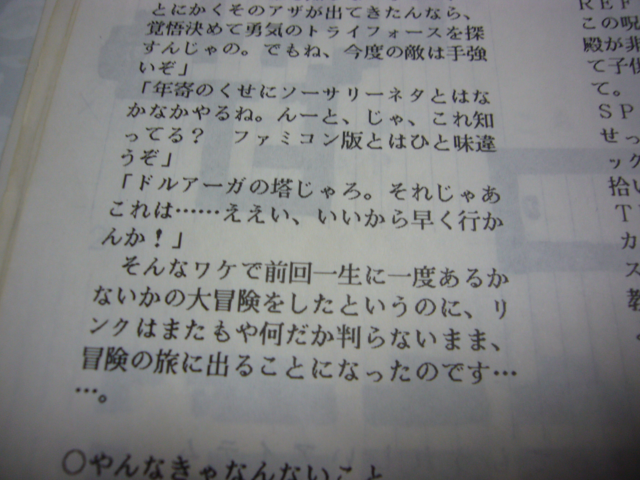 とにかくそのアザが出てきたんなら、
覚悟決めて勇気のトライフォースを探
すんじゃの。でもね、今度の敵は手強
いぞ」
「年寄のくせにソーサリーネタとはな
かなかやるね。んーと、じゃ、これ知
ってる？　ファミコン版とはひと味違
うぞ」
「ドルアーガの塔じゃろ。それじゃあ
これは……ええい、いいから早く行か
んか！」
　そんなワケで前回一生に一度あるか
ないかの大冒険をしたというのに、リ
ンクはまたもや何だか判らないまま、
冒険の旅に出ることになったのです…
…。
〇やんなきゃなんないこと
REF
この呪
殿が非
て子供
て。
SP
せっ
ック
拾い
T
カ
ス
教